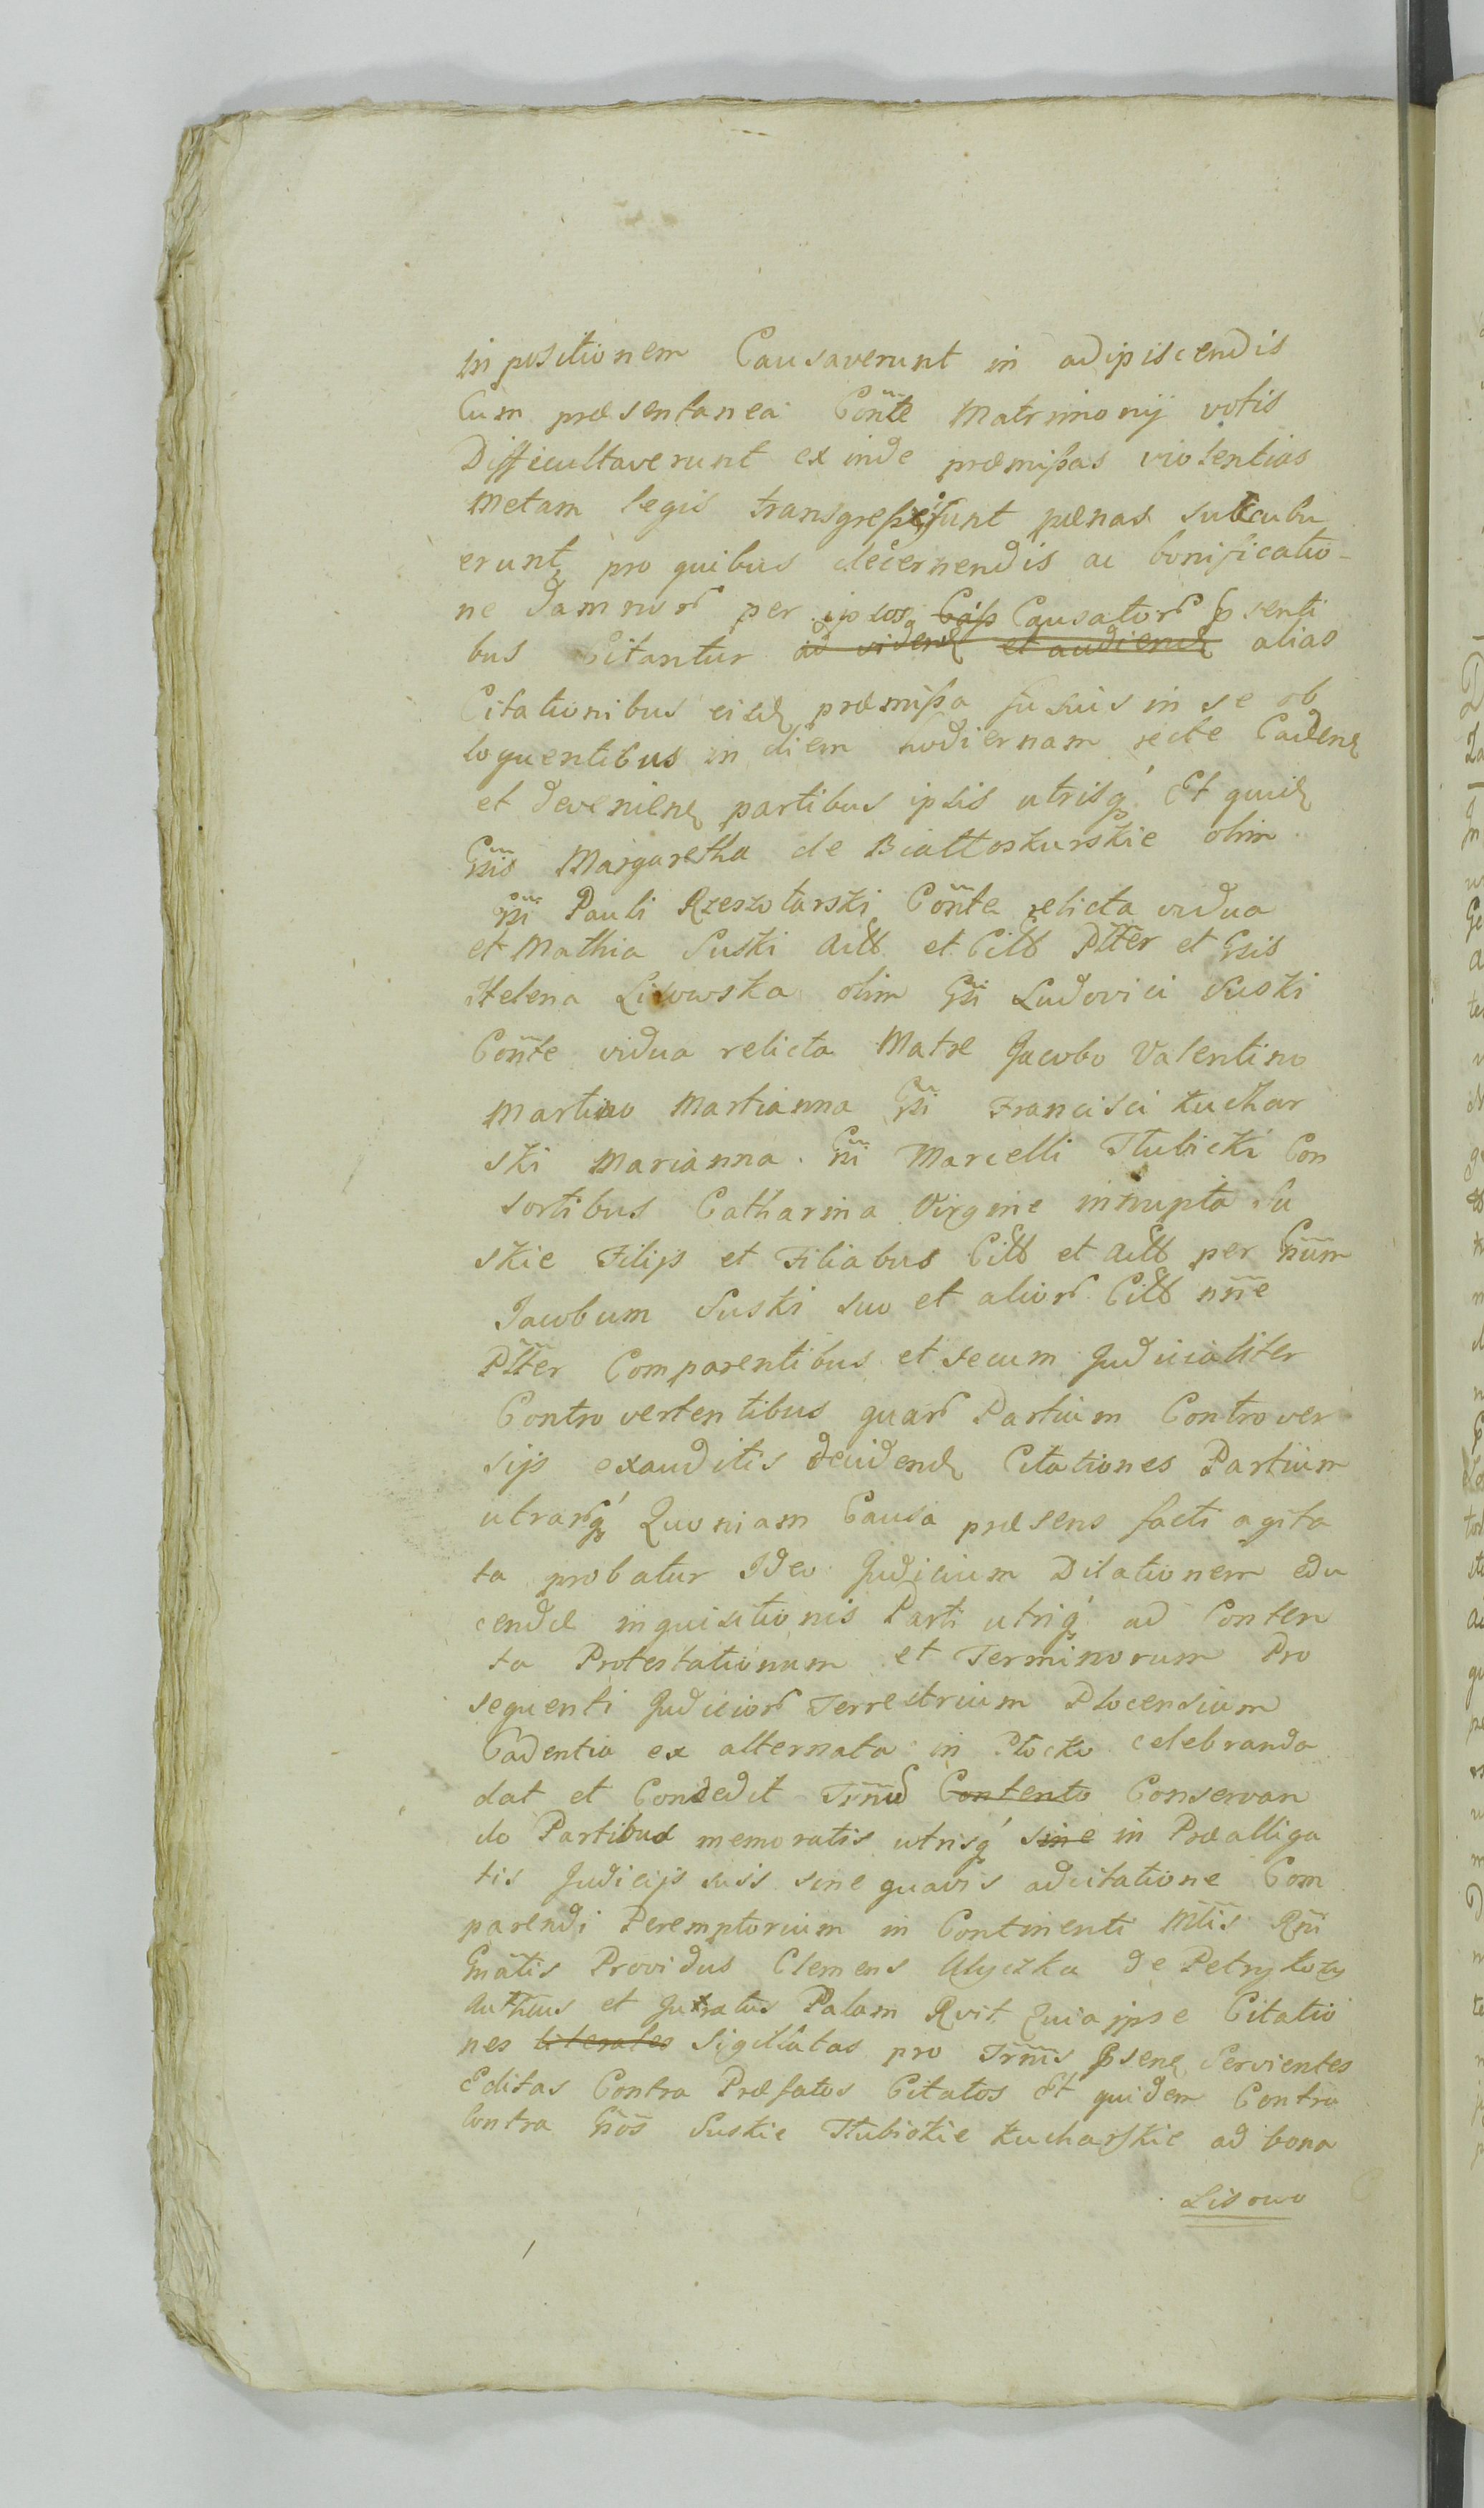 inpositionem Causaverunt in adipiscendis
Cum præsentanea Cõñte Matrimonij votis
Difficultaverunt exinde præmißas violentias
Metam legis transgreßi sunt pænas succubu
erunt pro quibus decernendis ac bonificatio-
ne damnor per ipsos Causator psenti
bus Citantur ad videnđ et audienđ alias
Citationibus eisđ præmißa fusius in se ob
loquentibus in diem hodiernam recte Cadenę
et devenienę partibus ipsis utrisq́ Et quiđ
Gsis Margaretha de Białłoskurskie olim
Gsi Pauli Rzeszotarski Cõñte relicta vidua
et Mathia Suski Actt et Citt Pltter et Gsis
Helena Lisowska olim Gsi Ludovici Suski
Cõñte vidua relicta Matre Jacobo Valentino
Martino Martianna Gsi Francisci Kuchar
ski Marianna Gñi Marcelli Tłubicki Con
sortibus Catharina Virgine innupta Su
skie Filijs et Filiabus Citt et Actt per Gñum
Jacobum Suski suo et alior Citt nñe
Pltter Comparentibus et secum Judicialiter
Controvertentibus quar Partium Controver
sijs exauditis decidenđ Citationes Partium
utrarq́ Quoniam Causa præsens facti agita
ta probatur Ideo Judicium Dilationem edu
cendæ inquisitionis Parti utriq́ ad Conten
ta Protestationum et Terminorum Pro
sequenti Judicior Terrestrium Plocensium
Cadentia ex alternata in Płocko celebranda
dat et Condedit Trñu Contento Conservan
do Partibus memoratis utrisq́ sine in Præalliga
tis Judicijs suis sine quavis adcitatione Com
parendi Peremptorium in Continenti Mtis Rñi
Gñatis Providus Clemens Ulyczka de Petrykozy
Authus et Juratus Palam Rvit Quia ipse Citatio
nes literales Sigillatas pro Trñis psenę Servientes
Editas Contra Præfatos Citatos Et quidem Contra
Contra Gños Suskie Tłubickie Kucharskie ad bona
Lisowo